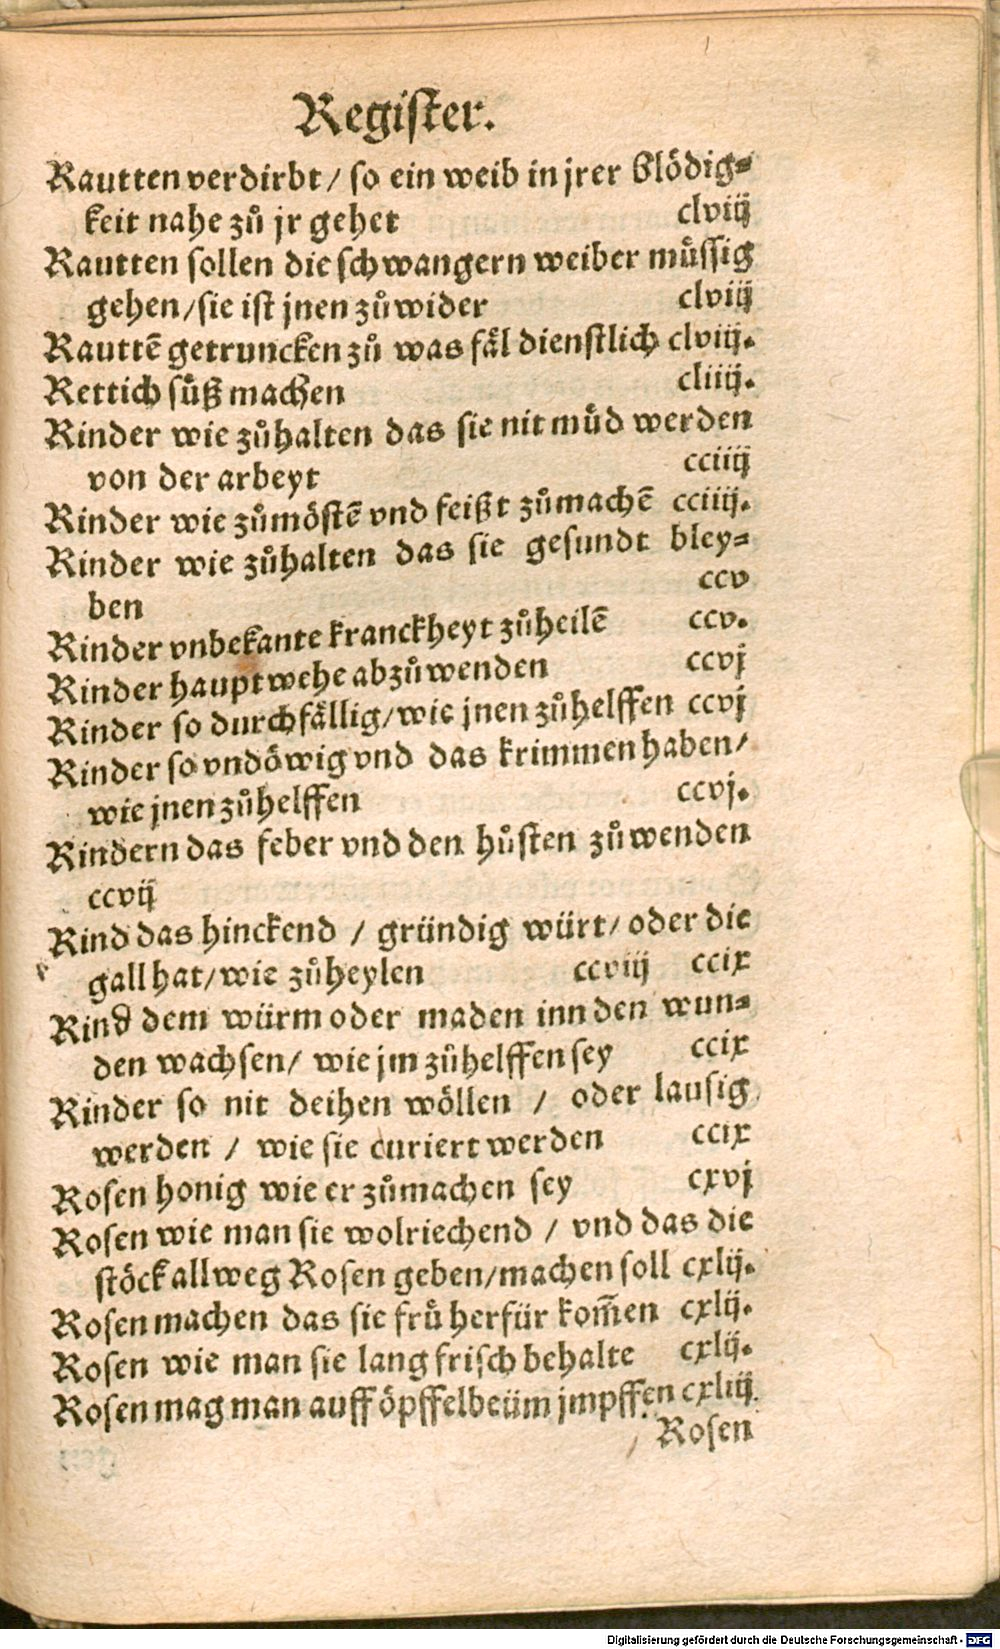 Register.
Rautten verdirbt / so ein weib in jrer blödig⸗
keit nahe zů jr gehet clviij
Rautten sollen die schwangern weiber müssig
gehen / sie ist jnen zůwider clviij
Rauttē getruncken zů was fäl dienstlich clviij.
Rettich süß machen cliiij.
Rinder wie zůhalten das sie nit müd werden
von der arbeyt cciiij
Rinder wie zůmöstē vnd feißt zůmachē cciiij.
Rinder wie zůhalten das sie gesundt bley⸗
ben ccv
Rinder vnbekante kranckheyt zůheilē ccv.
Rinder hauptwehe abzůwenden ccvj
Rinder so durchfällig / wie jnen zůhelffen ccvj
Rinder so vndöwig vnd das krimmen haben /
wie jnen zůhelffen ccvj.
Rindern das feber vnd den hůsten zůwenden
ccvij
Rind das hinckend / gründig würt / oder die
gall hat / wie zůheylen ccviij ccix
Rind dem würm oder maden inn den wun⸗
den wachsen / wie jm zůhelffen sey ccix
Rinder so nit deihen wöllen / oder lausig
werden / wie sie curiert werden ccix
Rosen honig wie er zůmachen sey cxvj
Rosen wie man sie wolriechend / vnd das die
stöck allweg Rosen geben / machen soll cxlij.
Rosen machen das sie frů herfür kom̄en cxlij.
Rosen wie man sie lang frisch behalte cxlij.
Rosen mag man auff öpffelbeüm jmpffen cxliij.
Rosen
Digitalisierung gefördert durch die Deutsche Forschungsgemeinschaft - DFG